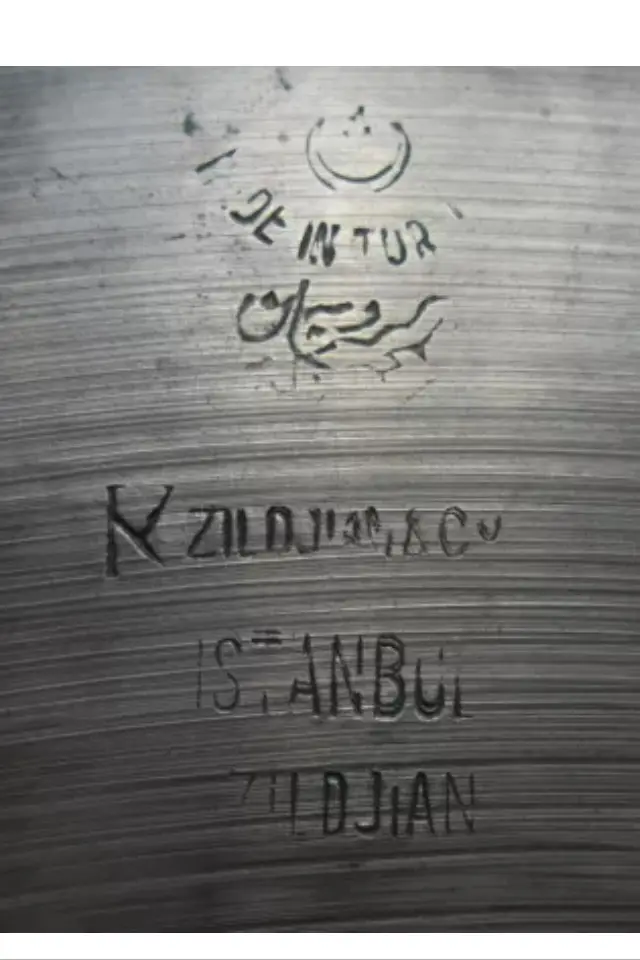 DE IN TUR
K ZILDJIAN & Co
ISTANBUL
ZILDJIAN